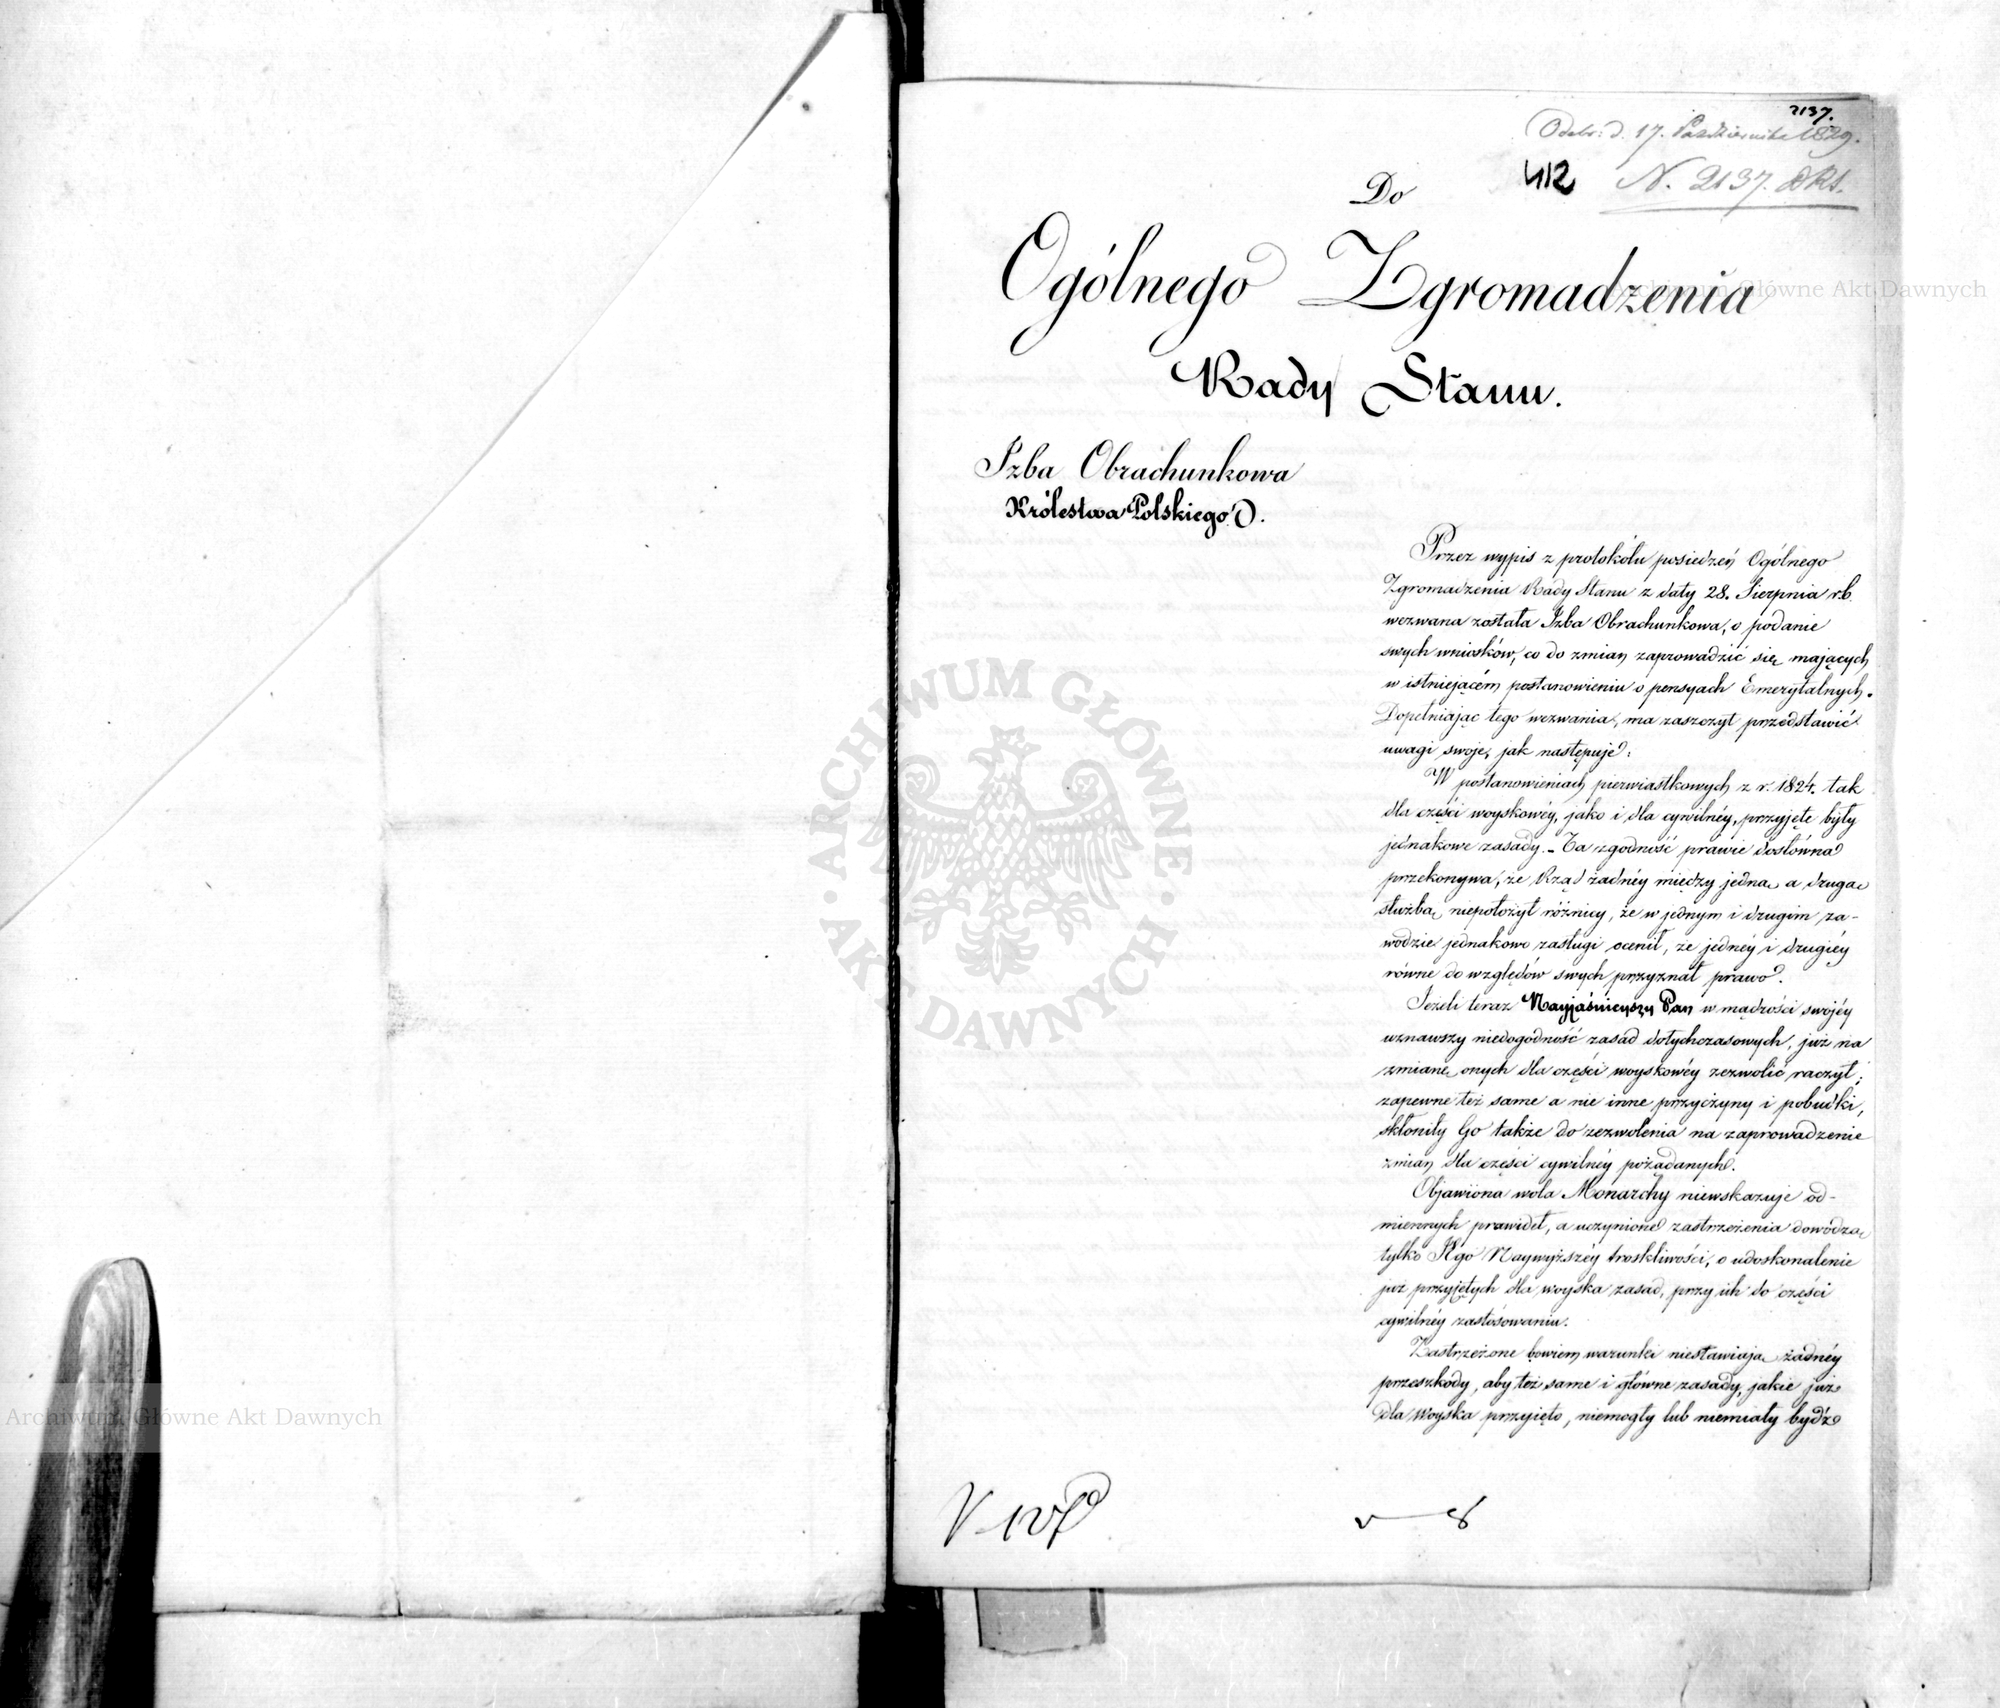 2137.
Odebr: d. 17. Października 1829.
412 N. 2137. DRS.
Do
Ogólnego Zgromadzenia
Rady Stanu.
Izba Obrachunkowa
Królestwa Polskiego.
Przez wypis z protokółu posiedzeń Ogólnego
Zgromadzenia Rady Stanu z daty 28. Sierpnia r.b.
wezwana została Izba Obrachunkowa, o podanie
swych wniosków, co do zmian zaprowadzić się mających
w istniejącém postanowieniu o pensyach Emerytalnych.
Dopełniając tego wezwania, ma zaszczyt przedstawić
uwagi swoje, jak następuje:
W postanowieniach pierwiastkowych z r. 1824. tak
dla części woyskowéy, jako i dla cywilnéy, przyjęte były
jednakowe zasady. - Ta zgodność prawie dosłówna
przekonywa, że Rząd żadnéy między jedną a drugą
służbą niepołożył różnicy, że w jednym i drugim za-
wodzie jednakowo zasługi ocenił, że jednéy i drugiéy
równe do względów swych przyznał prawo.
Jeżeli teraz Nayjaśnieyszy Pan w mądrości swojéy
uznawszy niedogodność zasad dotychczasowych, już na
zmianę onych dla części woyskowéy zezwolić raczył;
zapewne też same a nie inne przyczyny i pobudki,
skłoniły Go także do zezwolenia na zaprowadzenie
zmian dla części cywilnéy pożądanych.
Objawiona wola Monarchy niewskazuje od-
miennych prawideł, a uczynione zastrzeżenia dowodzą
tylko Jego Naywyższéy troskliwości, o udoskonalenie
już przyjętych dla woyska zasad, przy ich do części
cywilnéy zastósowaniu.
Zastrzeżone bowiem warunki niestawiają żadnéy
przeszkody, aby też same i główne zasady, jakie już
dla Woyska przyjęto, niemogły lub niemiały bydź
Archiwum Główne Akt Dawnych
Archiwum Główne Akt Dawnych
ARCHIWUM GŁÓWNE AKT DAWNYCH